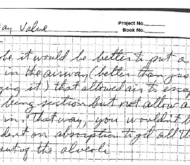 way Valve
Project No.
Book No.
be it would be better to put a
in the airway (better than just
ing it) that allowed air to escape
being section but not allow a
in. That way, you wouldn't b
dent on absorption to get all th
enting the alveoli